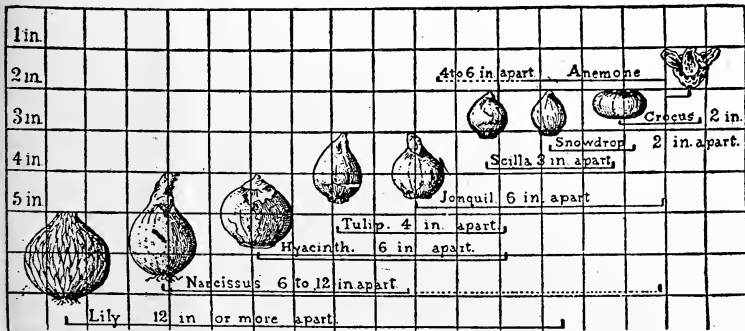 1 in.
2 in.
4 to 6 in. apart Anemone
3 in.
Crocus 2 in.
Snowdrop 2 in. apart.
4 in.
Scilla 3 in. apart
5 in.
Jonquil 6 in. apart
Tulip. 4 in. apart.
Hyacinth. 6 in. apart.
Narcissus 6 to 12 in apart
Lily 12 in or more apart.